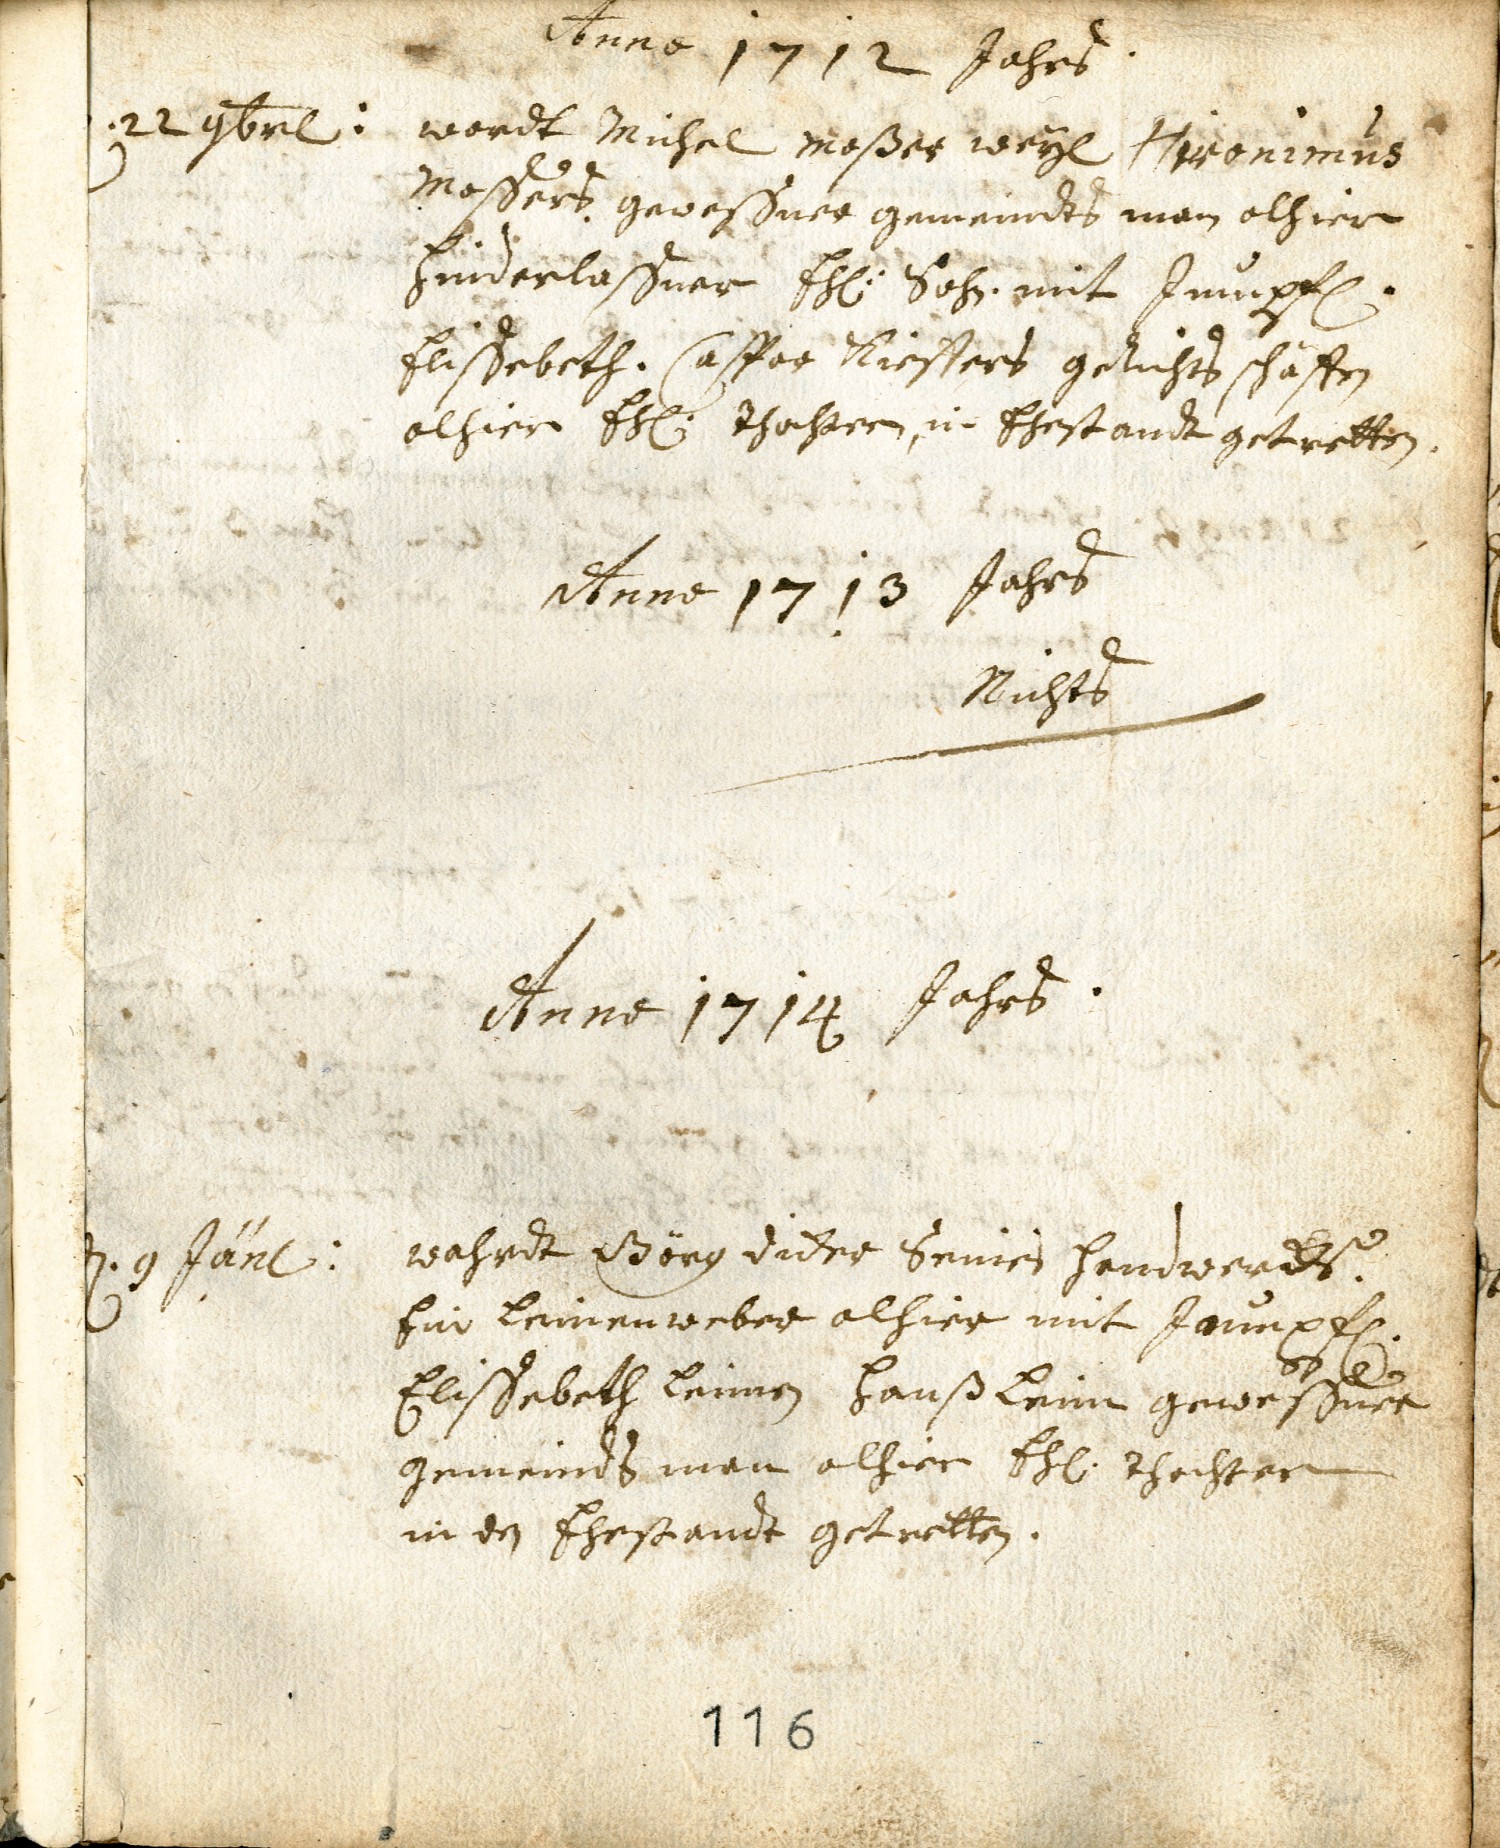 Anno 1712 Jahrs.
.22 9brl: wardt Michel Moßer weyl Hironimus
Mossers. gewessner gemeindts man alhier
hinderlassner Ehl: Sohn. mit Junpfl.
Elissebeth. Casper Kiessers gerichts schäffen
alhier Ehl: Thochter, in Ehestandt getretten.
Anno 1713 Jahrs
Nichts
Anno 1714 Jahrs.
D. 9 Jänl: wahrdt Görg Seines handwerckhs.
Ein Leinenweber alhier mit Jounpfl.
Elissebeth Leimen Hanß Leim gewessner
gemeinds man alhier Ehl: Thochter
in den Ehestandt getretten.
116